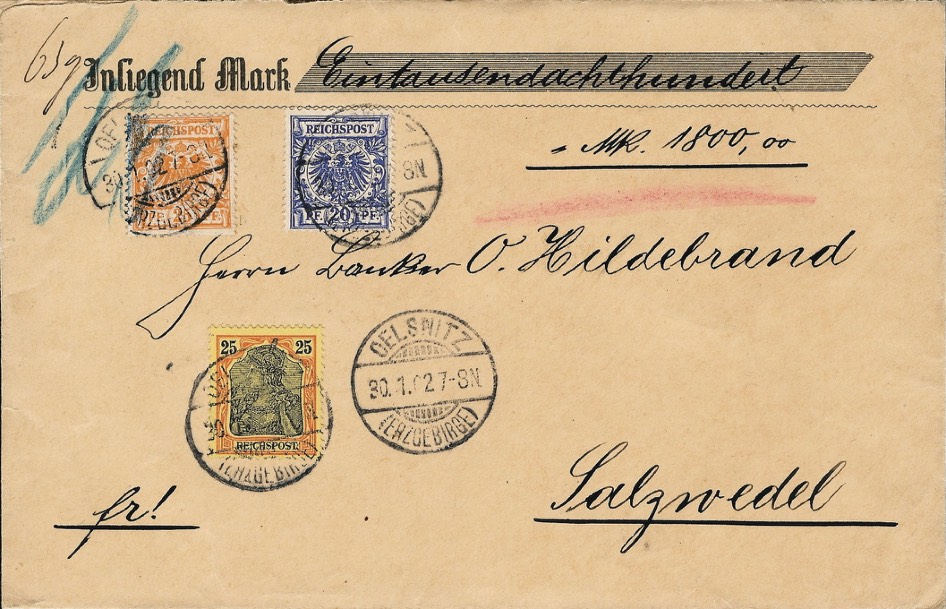 65g
Inliegend Mark Eintausendachthundert
MK. 1800,00
REICHSPOST
OELSNITZ
30.1.02 7-8N
(ERZGEBIRGE)
REICHSPOST
PF 20 PF
8N
(ERZGEBIRGE)
Herrn Banker O. Hildebrand
25 25
REICHSPOST
(ERZGEBIRGE)
OELSNITZ
30.1.02 7-8N
(ERZGEBIRGE)
fr!
Salzwedel